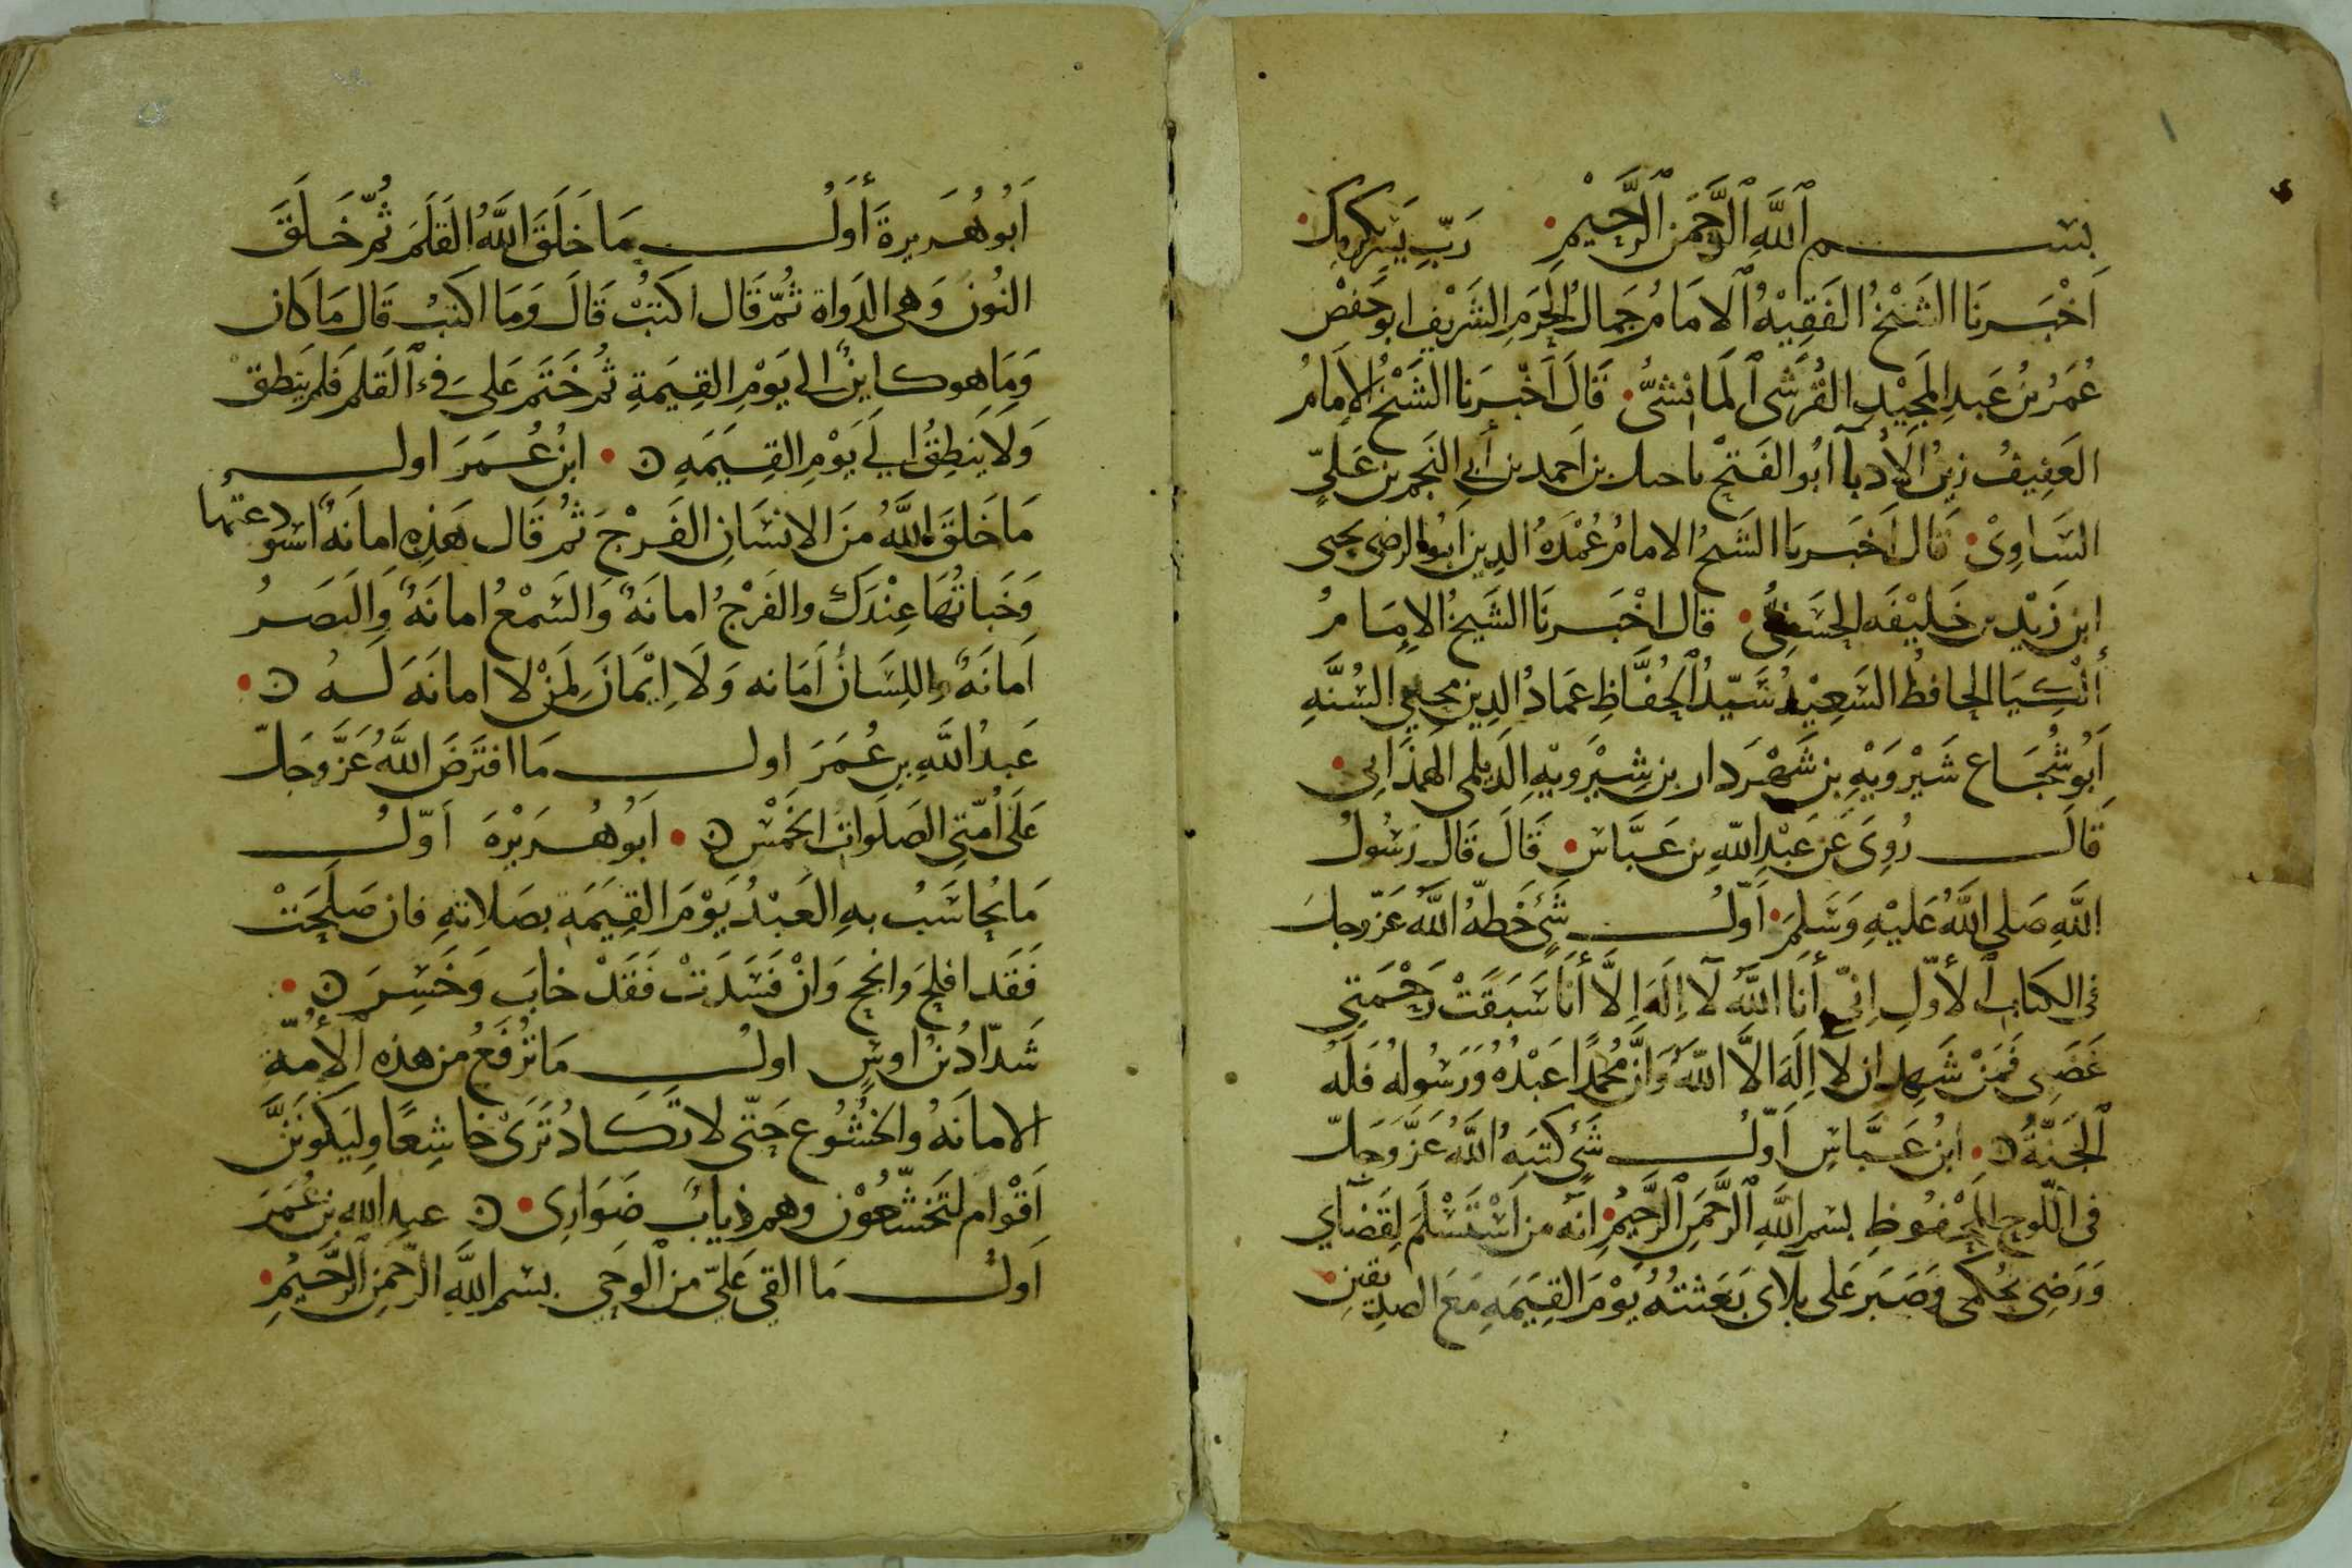 بسم اللَّهِ الرَّحْمَنِ الرَّحِيْمِ رَبِّ يَسِّرْ بِكَرمِكَ
اَخْبَرنَا الشَيْخُ الفَقِيْهُ الامَامُ جَمالُ الحَرَمِ الشَرِيْفِ ابو حَفصْ
عُمَرُ بنُ عَبدِ المَجِيْدِ القُرَشى المَيانِشىُّ قَالَ أَخْبَرَنا الشَيْخُ الإمامُ
العَفِيفُ زينُ الأُدبآ ابُو الفَتحْ بن احمد بن أبي النَجم بن عَليٍّ
السَاوِىْ قال اَخبَرنَا الشَيخُ الامامُ عُمْدَهُ الدين ابُو الرضى يحيى
ابن زَيْد بن خَليْفَه الحسَينىُّ قال اخْبَرنَا الشَيخُ الإِمَامُ
ألْكِيَا الحافظُ السَعِيْدُ سَيّدُ الحُفَّاظِ عمَادُ الدِين محيي السُنَّهِ
اَبُو شُجَاع شَيْرَوَيْهِ بن شَهْرَدار بن شِيْرَويْهِ الدَيلمى الهمذَانِى
قَالَ رُوِىَ عَن عَبْدِ اللهِ بن عَبَّاسٍ قَالَ قَالَ رَسُولُ
اللَّهِ صَلى اللَّهُ عَليْهِ وَسَلم اَوّلُ شَىْءٍ خَطهُ اللَّهُ عَزّ وجل
فى الكتابِ الأوّلِ اِنّى أَنا اللَّهُ لآ اِلَهَ اِلاَّ أَنَا سَبَقَتْ رَحْمَتِى
غَضَبِى فَمَنْ شَهِد ان لآ اِلَهَ الاَّ اللَّهُ وَانَّ مُحُمَّدًا عَبْدُهُ وَرَسُولهُ فَلَهُ
الجَنّةُ ابنُ عَبَّاسِ اَوّلُ شَىْءٍ كَتَبَهُ اللَّهُ عَزَّ وَجَلّ
فى اللّوحِ المَحْفُوظِ بسمِ اللَّهِ الرَّحْمَنِ الرَّحِيْمِ انّه من اسْتَسْلَمَ لِقَضآىِ
وَرَضِىَ بحُكمى وَصَبَر عَلى بلآى بَعَثتُهُ يَوْمَ القِيَمَهِ مَعَ الصديقين
اَبُو هُرَيرةَ أَوَلُ مَا خَلَقَ اللَّهُ القَلَمَ ثُمّ خَلَقَ
النُونَ وَهى الدَواة ثُمّ قَال اكتبُْ قَالَ وَمَا اكتبُ قَال مَا كَان
وَمَا هو كاينٌ الى يَوْمِ القِيَمَةِ ثُم خَتَمَ عَلى فىِ القَلم فَلم يَنطِقْ
وَلاَ يَنطِقُ الي يَوْمِ القِيَمَهِ ابنُ عُمَرَ اول
مَا خَلقَ اللَّهُ مِنَ الانسَانِ الفَرْجَ ثُم قَال هَذِهِ امانَهٌ استودعتها
وَخَباتُهَا عِنْدَكَ والفَرْجُ امانَهٌ وَالسَمْعُ امانَهٌ وَالبَصَرُ
اَمانَهٌ واللِسَانُ اَمَانه وَلاَ اِيْمَانَ لِمَنْ لا امانَهَ لَهُ
عَبدُ اللَّهِ بن عُمَرَ اول مَا افتَرَضَ اللَّهُ عَزَّ وجَلّ
عَلَى اُمّتِى الصَلَواتُ الخَمْسْ اَبُو هُرَيْرَهَ اَوّلُ
مَا يُحاسَبُ بهِ العَبْدُ يَوْمَ القِيَمَهِ بصَلاتهِ فان صَلحَتْ
فَقَد افلحَ وَانجح وَانْ فَسَدَتْ فَقَدْ خابَ وَخَسِرَ
شَدّادُ بنُ اوسٍ اولُ مَا تُرْفَعُ من هذه الأمّةِ
الامانَهُ والخشُوع حَتّى لا تكَادُ تَرَى خاشِعًا وليَكونَنَّ
اَقوامٌ لَتَخشّعُوْن وهم ذيابٌ ضَوَارِى عبد الله بن عُمَرَ
اَولُ مَا القي عَليّ من الوحي بسم اللَّهِ الرَّحْمنِ الرَّحَيْمِ